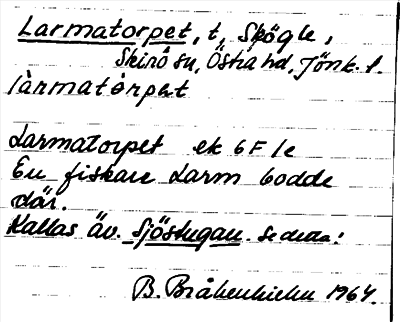 Larmatorpet, t, Skögle,
Skirö sn, Östra hd, Jönk. l.
làrmatórpet
Larmatorpet ek 6F 1e
En fiskare Larm bodde
där.
Kallas äv. Sjöstugan. Se detta!
B. 1964.